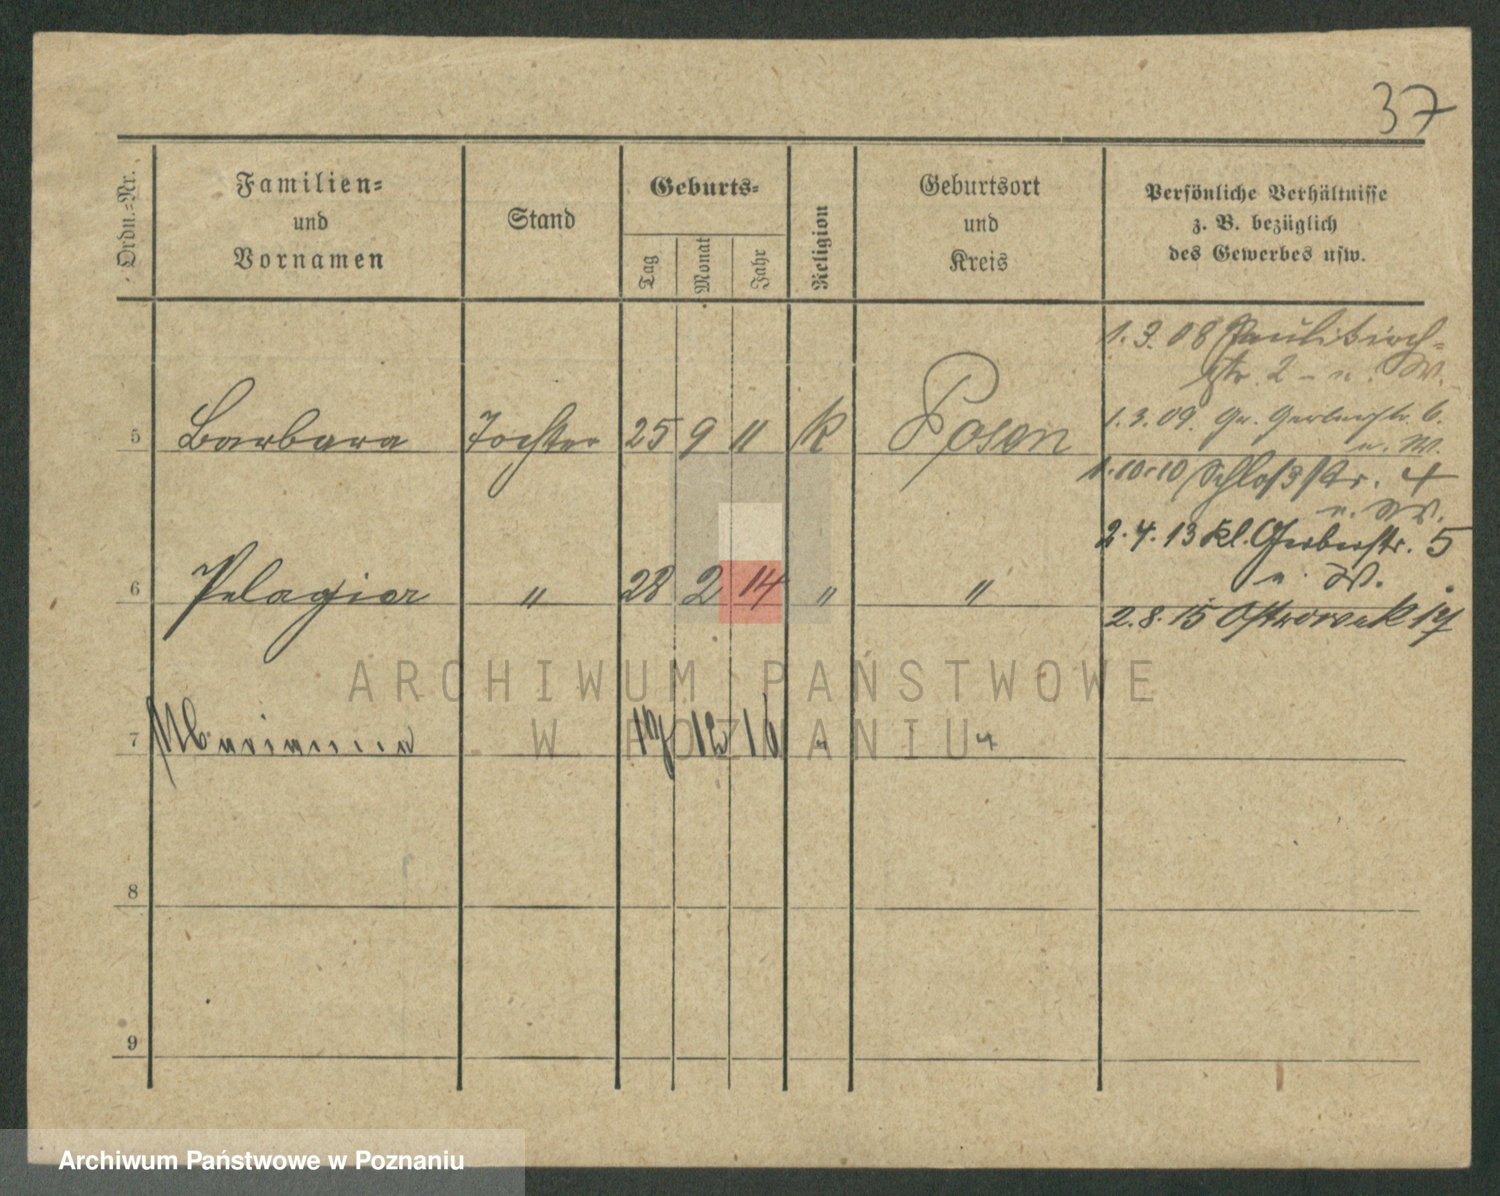 37
Ordn.-Nr.
Familien-
und
Vornamen
Stand
Geburts-
Tag
Monat
Jahr
Religion
Geburtsort
und
Kreis
Persönliche Verhältnisse
z. B. bezüglich
des Gewerbes usw.
1.3.08 Paulikirch-
str. 2 - u. W.
5 Barbara Tochter 25 9 11 K Posen
1.3.09. Gr. Gerberstr. 6.
u. W.
1.10.10 Schloßstr. 4
u. W.
2.4.13 kl. Gerberstr. 5
u. W.
6 Pelagia " 28 2 14 " "
2.8.15 Ostrowek 19
ARCHIWUM PAŃSTWOWE
W POZNANIU
7 Marianna 17 12 16 " "
8
9
Archiwum Państwowe w Poznaniu